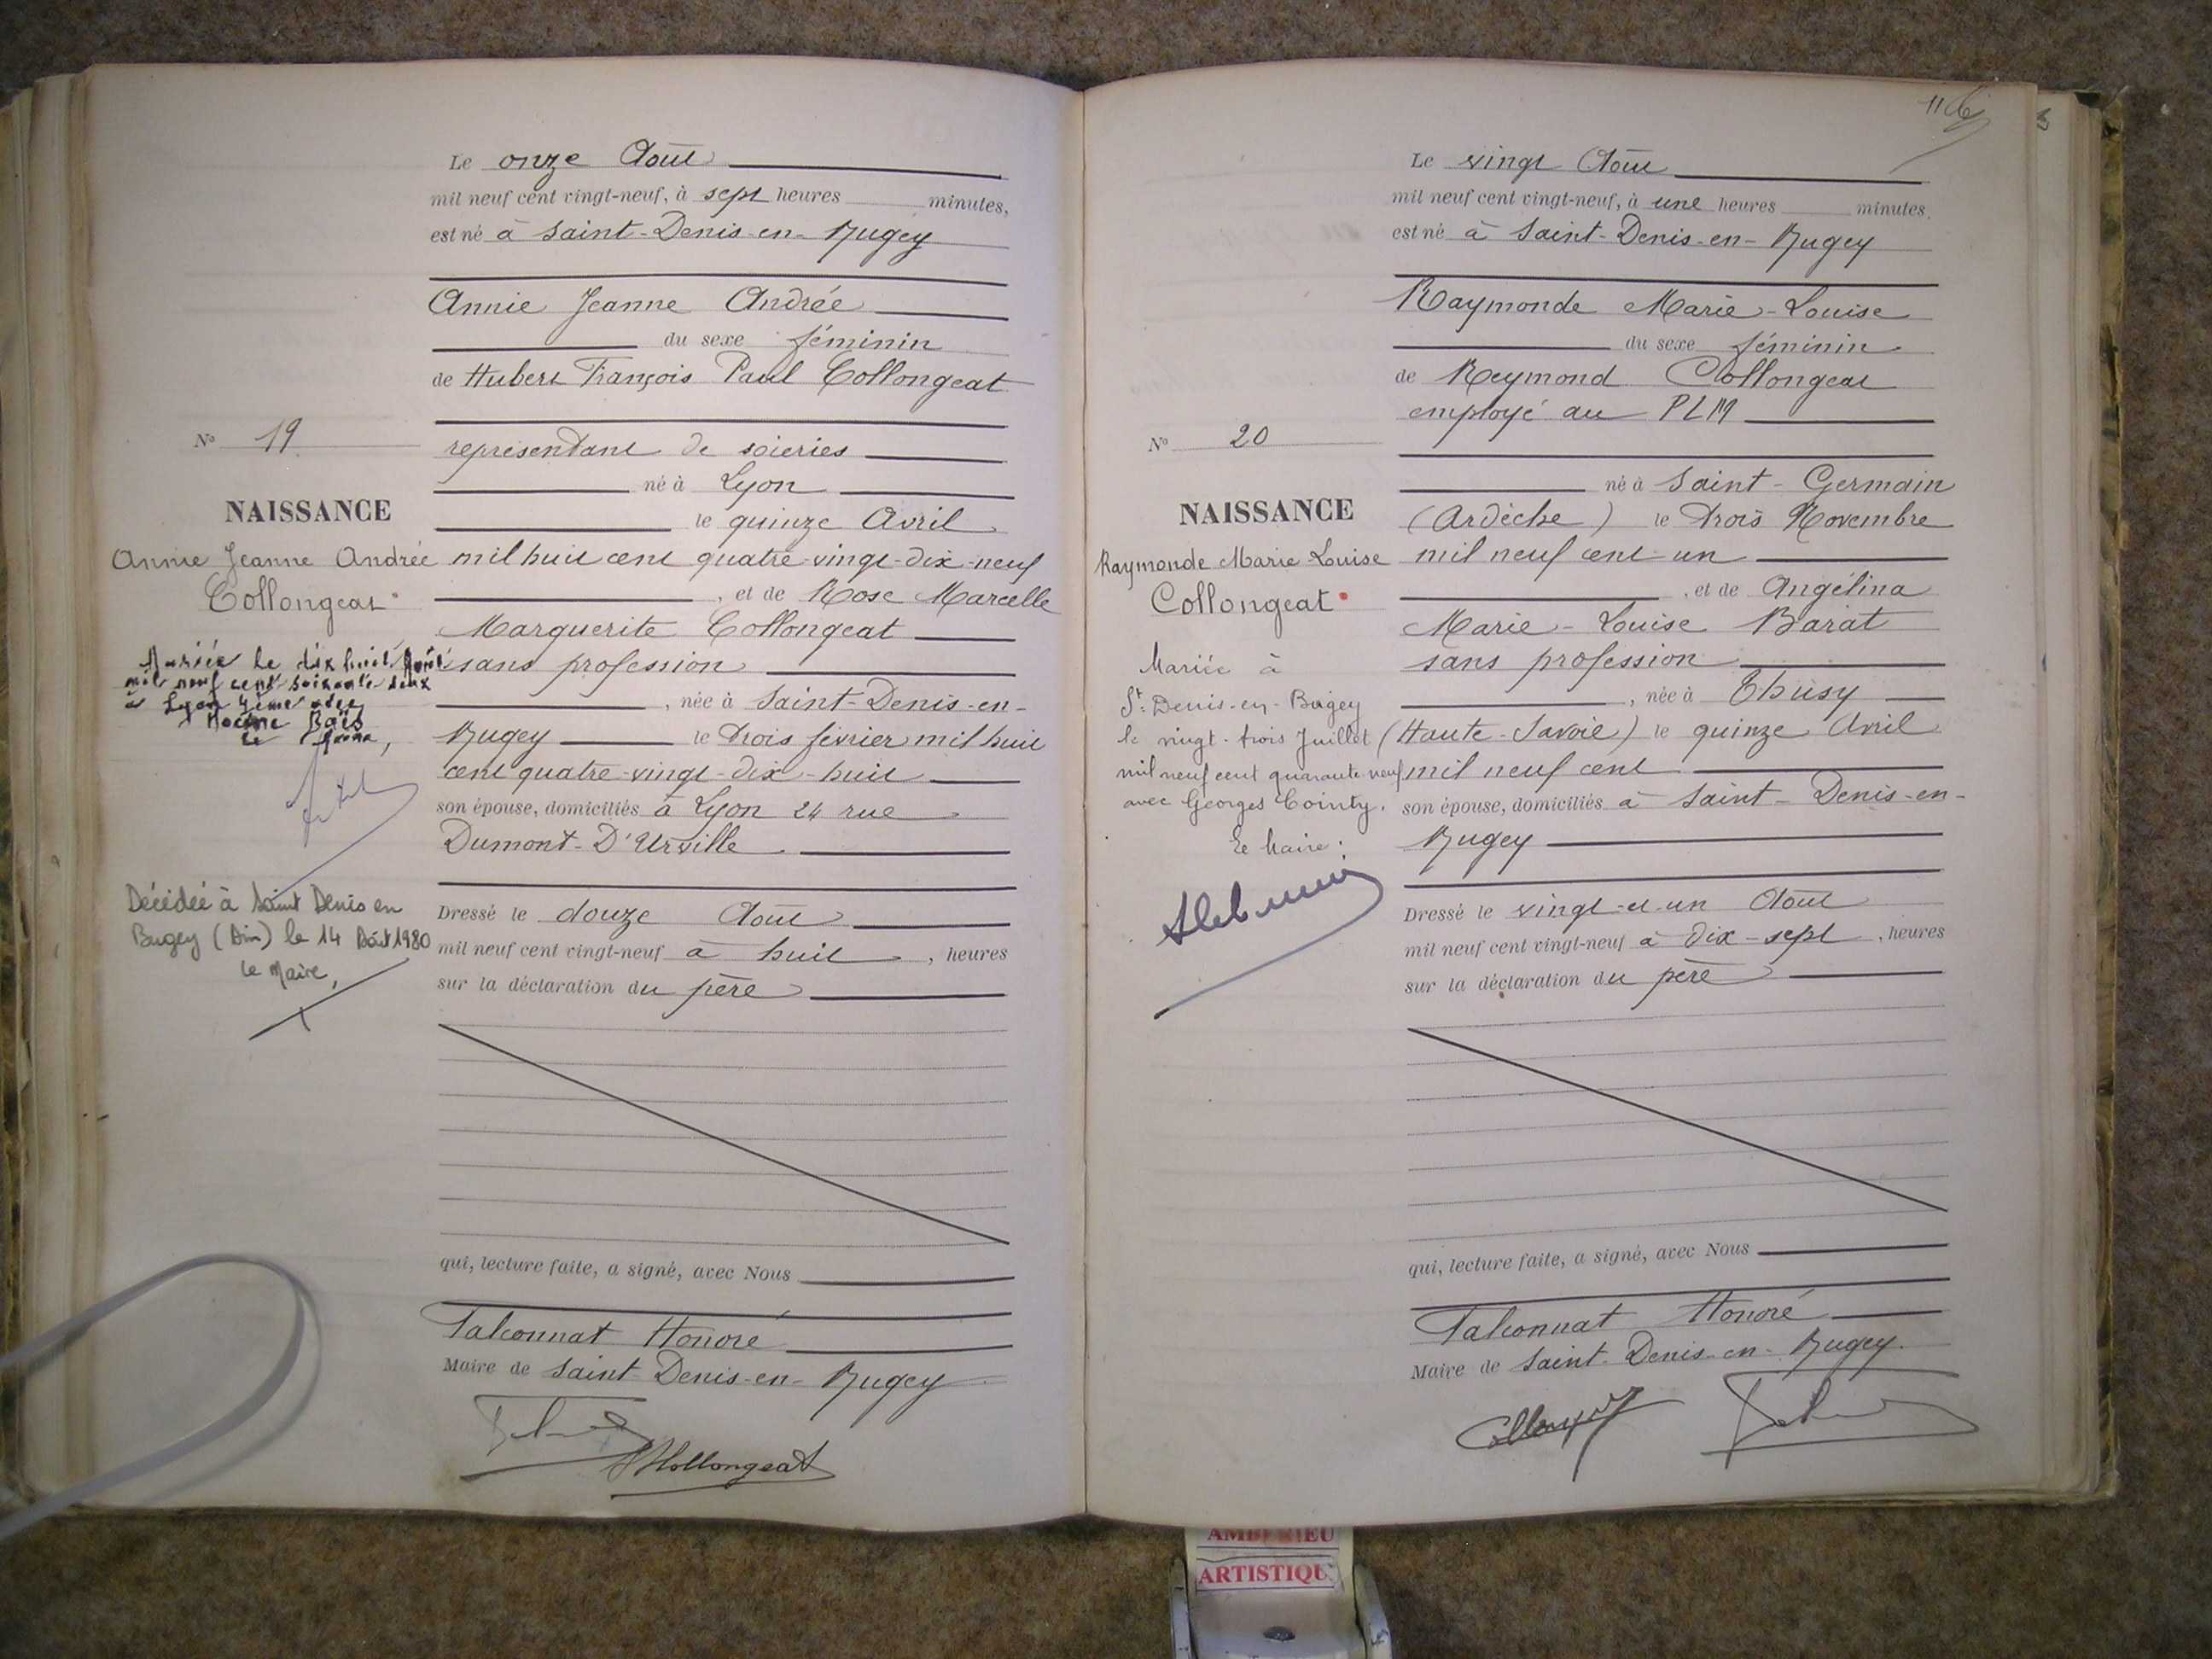 Le onze Août
mil neuf cent vingt-neuf, à sept heures minutes,
est né à Saint-Denis-en-Bugey
Annie Jeanne Andrée
du sexe féminin
de Hubert François Paul Collongeat
représentant de soieries
né à Lyon
le quinze Avril
mil huit cent quatre-vingt-dix-neuf
, et de Rose Marcelle
Marguerite Collongeat
sans profession
, née à Saint-Denis-en-
Bugey le trois février mil huit
cent quatre-vingt-dix-huit
son épouse, domiciliés à Lyon 24 rue
Dumont-D'Urville
Dressé le douze Août
mil neuf cent vingt-neuf à huit , heures
sur la déclaration du père
qui, lecture faite, a signé, avec Nous
Falconnat Honoré
Maire de Saint-Denis-en-Bugey
Hollongeat
N° 19
NAISSANCE
Annie Jeanne Andrée
Collongeat
Mariée le dix huit Avril
mil neuf cent soixante deux
à Lyon 4ème
Le Maire,
Décédée à Saint Denis en
Bugey (Ain) le 14 Août 1980
le Maire,
116
Le vingt Août
mil neuf cent vingt-neuf, à une heures minutes.
est né à Saint-Denis-en-Bugey
Raymonde Marie-Louise
du sexe féminin
de Reymond Collongeat
employé au PLM
né à Saint-Germain
(Ardèche) le trois Novembre
mil neuf cent un
, et de Angélina
Marie-Louise Barat
sans profession
, née à Thusy
(Haute-Savoie) le quinze Avril
mil neuf cent
son épouse, domiciliés à Saint-Denis-en-
Bugey
Dressé le vingt-et-un Août
mil neuf cent vingt-neuf à dix-sept , heures
sur la déclaration du père
qui, lecture faite, a signé, avec Nous
Falconnat Honoré
Maire de Saint-Denis-en-Bugey.
N° 20
NAISSANCE
Raymonde Marie Louise
Collongeat
Mariée à
St. Denis-en-Bugey
le vingt-trois Juillet
mil neuf cent quarante neuf
avec Georges Cointy.
Le Maire:
ARTISTIQU